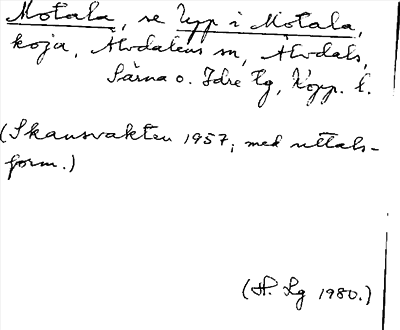 Motala, se Upp i Motala,
koja, Älvdalens sn, Älvdals,
Särna o. Idre tg, Kopp. l.
(Skansvakten 1957; med uttals-
form.)
(H. Lg 1980.)